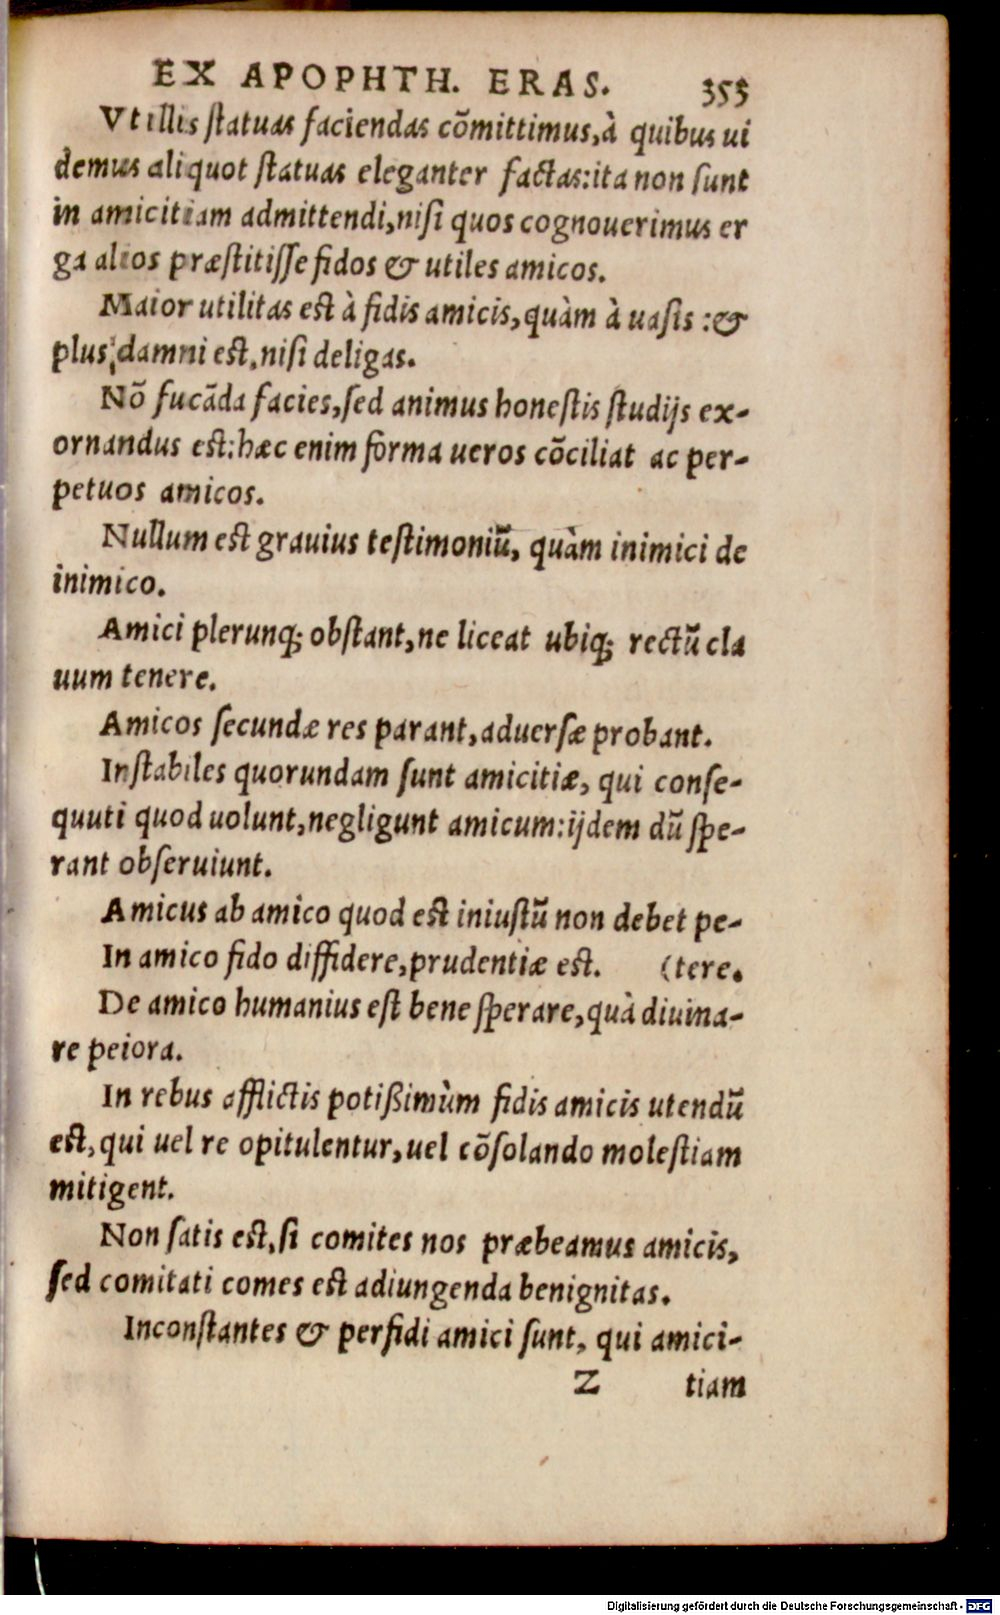 EX APOPHTH. ERAS. 353
Vt illis ſtatuas faciendas cõmittimus,à quibus ui
demus aliquot ſtatuas eleganter factas:ita non ſunt
in amicitiam admittendi,niſi quos cognouerimus er
ga alios præſtitiſſe fidos & utiles amicos.
Maior utilitas est à fidis amicis,quàm à uaſis :&
plus damni est,niſi deligas.
Nõ fucãda facies,ſed animus honeſtis ſtudijs ex-
ornandus est:hæc enim forma ueros cõciliat ac per-
petuos amicos.
Nullum est grauius teſtimoniũ, quàm inimici de
inimico.
Amici plerunq; obſtant,ne liceat ubiq; rectũ cla
uum tenere.
Amicos ſecundæ res parant,aduerſæ probant.
Inſtabiles quorundam ſunt amicitiæ, qui conſe-
quuti quod uolunt,negligunt amicum:ijdem dũ ſpe-
rant obſeruiunt.
Amicus ab amico quod est iniuſtũ non debet pe-
In amico fido diffidere,prudentiæ est. (tere.
De amico humanius eſt bene ſperare,quà diuina-
re peiora.
In rebus afflictis potißimùm fidis amicis utendũ
est,qui uel re opitulentur,uel cõſolando moleſtiam
mitigent.
Non ſatis est,ſi comites nos præbeamus amicis,
ſed comitati comes est adiungenda benignitas.
Inconſtantes & perfidi amici ſunt, qui amici-
Z tiam
Digitalisierung gefördert durch die Deutsche Forschungsgemeinschaft - DFG